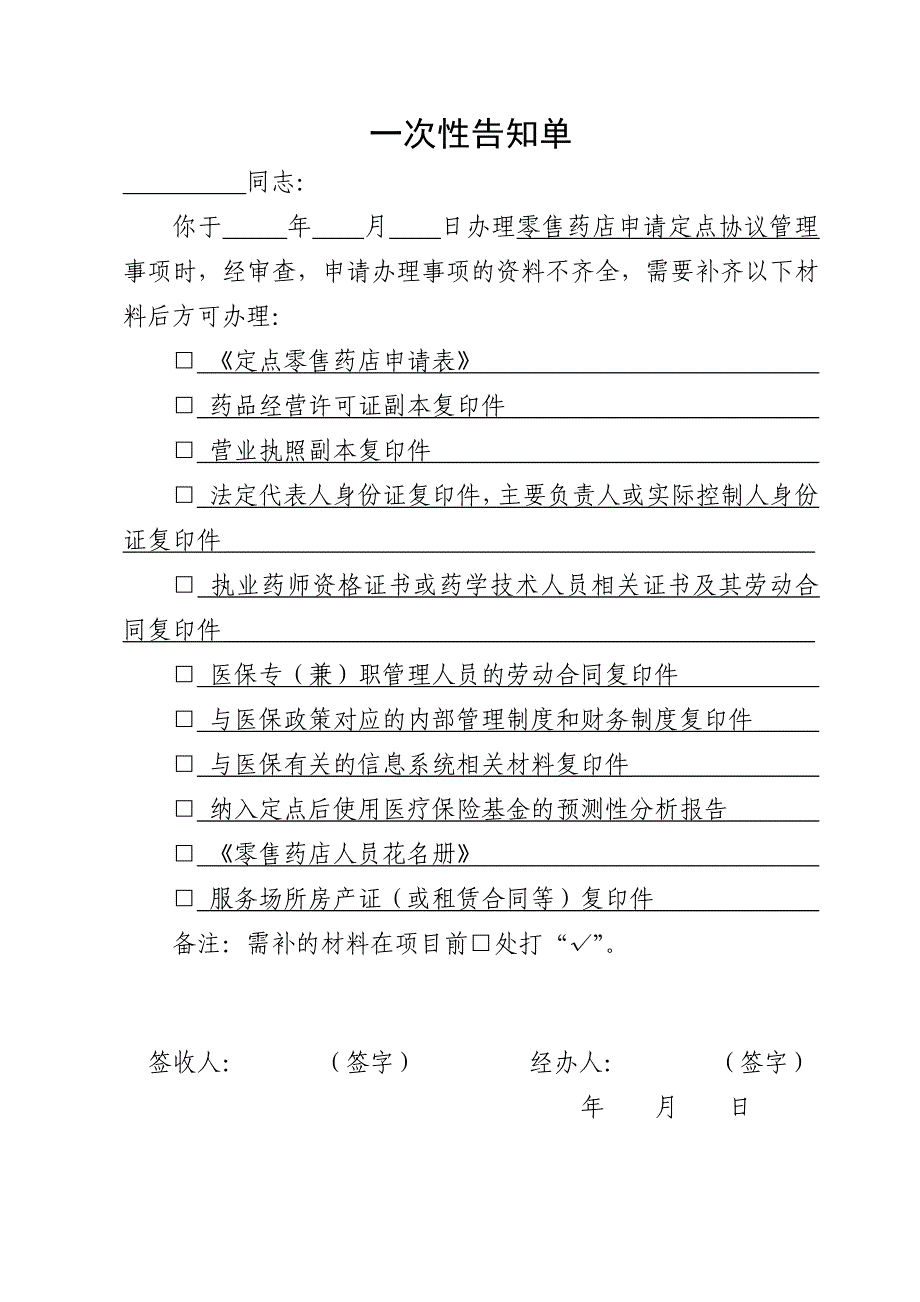 一次性告知单
__________同志：
你于_____年____月____日办理零售药店申请定点协议管理
事项时，经审查，申请办理事项的资料不齐全，需要补齐以下材
料后方可办理：
□ 《定点零售药店申请表》
□ 药品经营许可证副本复印件
□ 营业执照副本复印件
□ 法定代表人身份证复印件，主要负责人或实际控制人身份
证复印件
□ 执业药师资格证书或药学技术人员相关证书及其劳动合
同复印件
□ 医保专（兼）职管理人员的劳动合同复印件
□ 与医保政策对应的内部管理制度和财务制度复印件
□ 与医保有关的信息系统相关材料复印件
□ 纳入定点后使用医疗保险基金的预测性分析报告
□ 《零售药店人员花名册》
□ 服务场所房产证（或租赁合同等）复印件
备注：需补的材料在项目前□处打“√”。
签收人： （签字） 经办人： （签字）
年 月 日